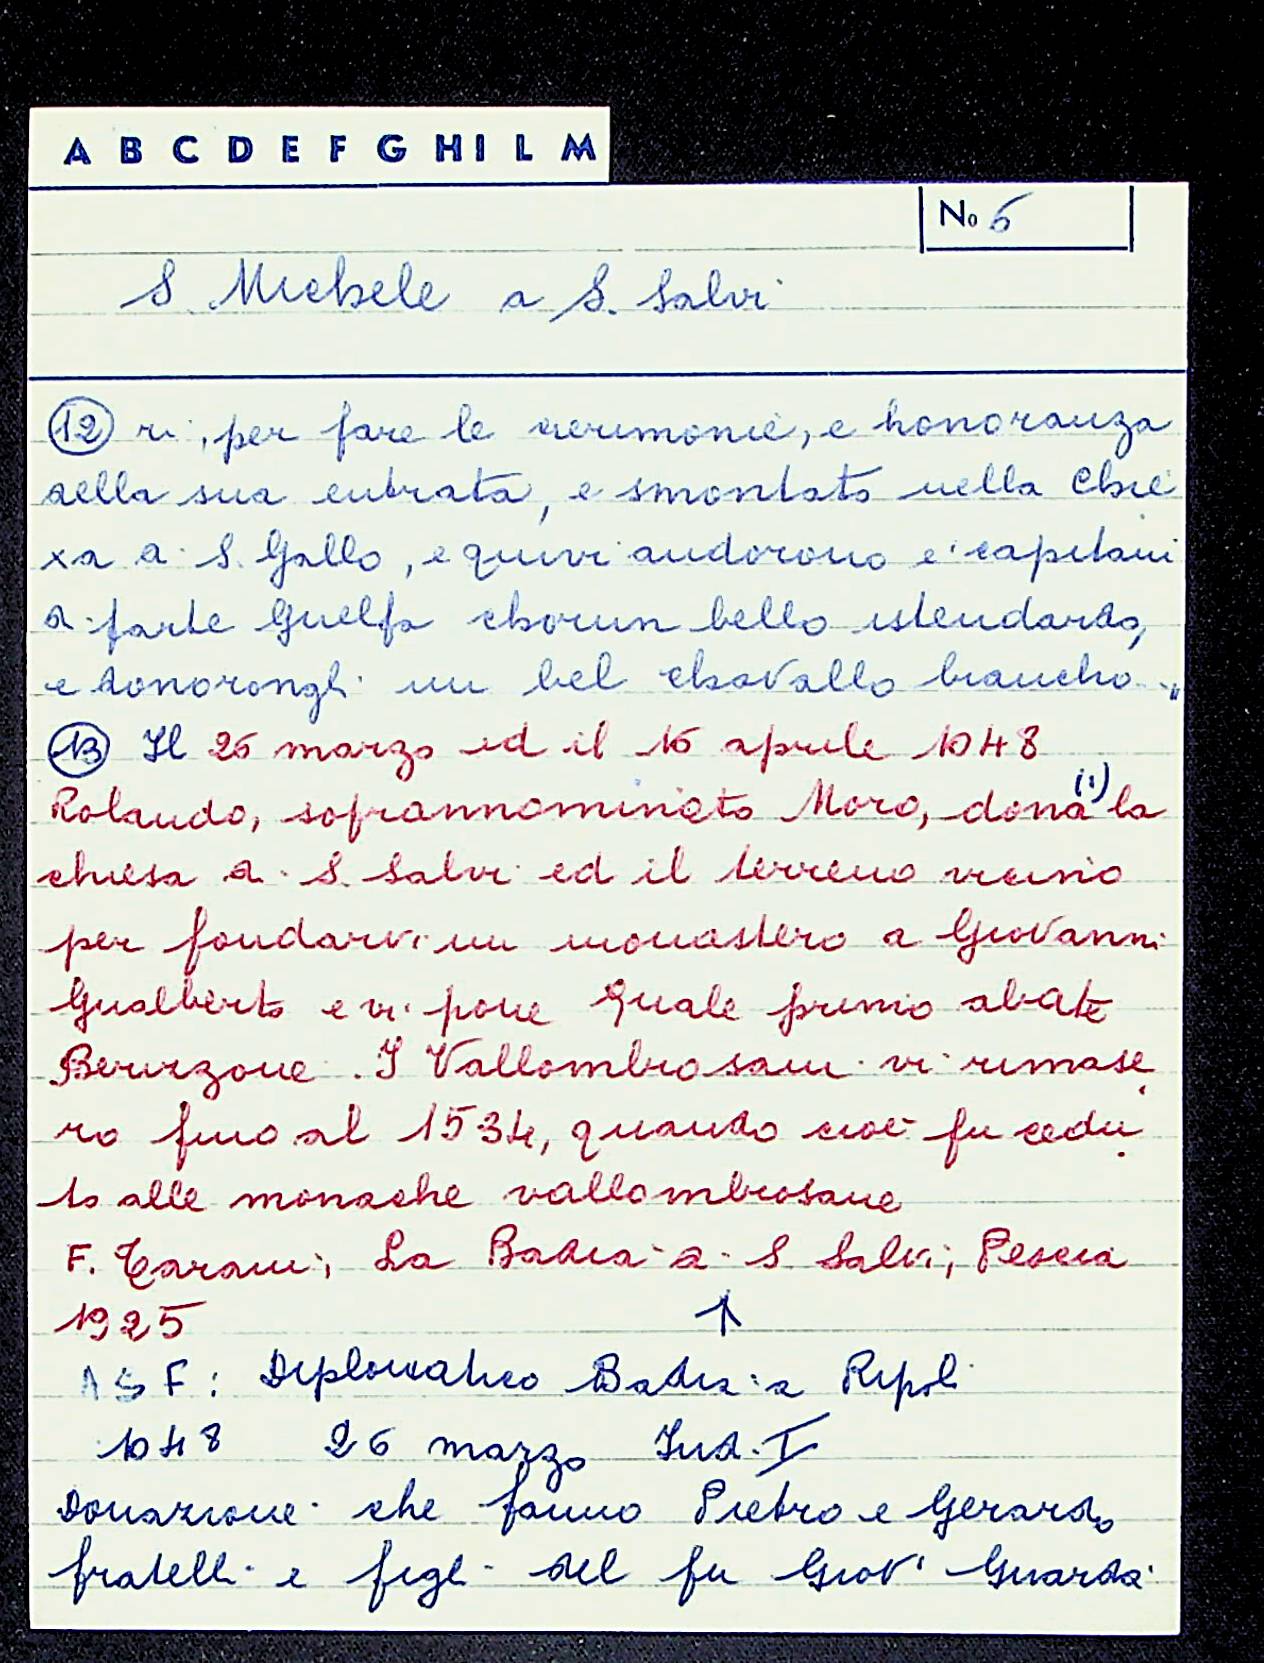 A B C D E F G H I L M
No 6
S. Michele a S. Salvi
(12) ri, per fare le cierimonie, e honoranza
della sua entrata, e smontato nella Chie
xa di S. Gallo, e quivi andorono e' capitani
di parte Guelfa chorun bello istendardo,
e donorongli un bel chavallo biancho."
(13) Il 26 marzo ed il 16 aprile 1048
Rolando, soprannominato Moro, dona (1) la
chiesa di S. Salvi ed il terreno vicino
per fondarvi un monastero a Giovanni
Gualberto e vi pone quale primo abate
Berizone. I Vallombrosani vi rimase
ro fino al 1534, quando cioè fu cedu
to alle monache vallombrosane
F. Tarani, La Badia di S. Salvi, Pescia
1925
ASF: Diplomatico Badia a Ripoli
1048 26 marzo Ind. I
Donazione che fanno Pietro e Gerardo
fratelli e figli del fu Giov' Guardia